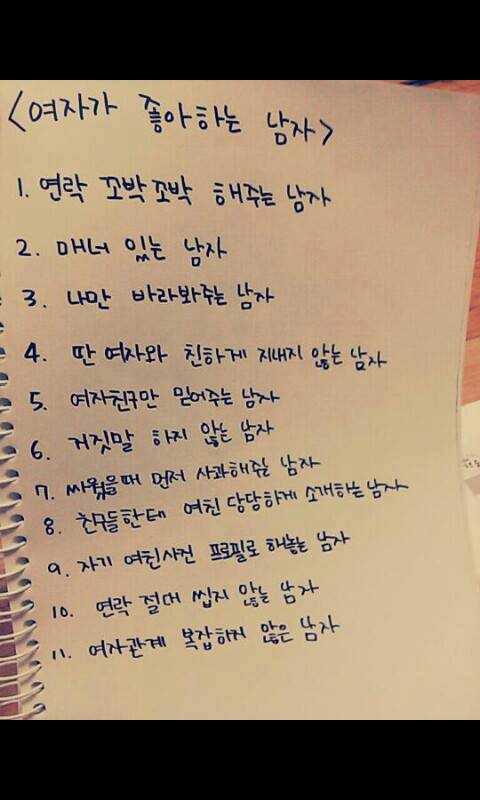 <여자가 좋아하는 남자>
1. 연락 꼬박꼬박 해주는 남자
2. 매너 있는 남자
3. 나만 바라봐주는 남자
4. 딴 여자와 친하게 지내지 않는 남자
5. 여자친구만 믿어주는 남자
6. 거짓말 하지 않는 남자
7. 싸웠을때 먼저 사과해주는 남자
8. 친구들한테 여친 당당하게 소개하는 남자
9. 자기 여친사진 프로필로 해놓는 남자
10. 연락 절대 씹지 않는 남자
11. 여자관계 복잡하지 않은 남자